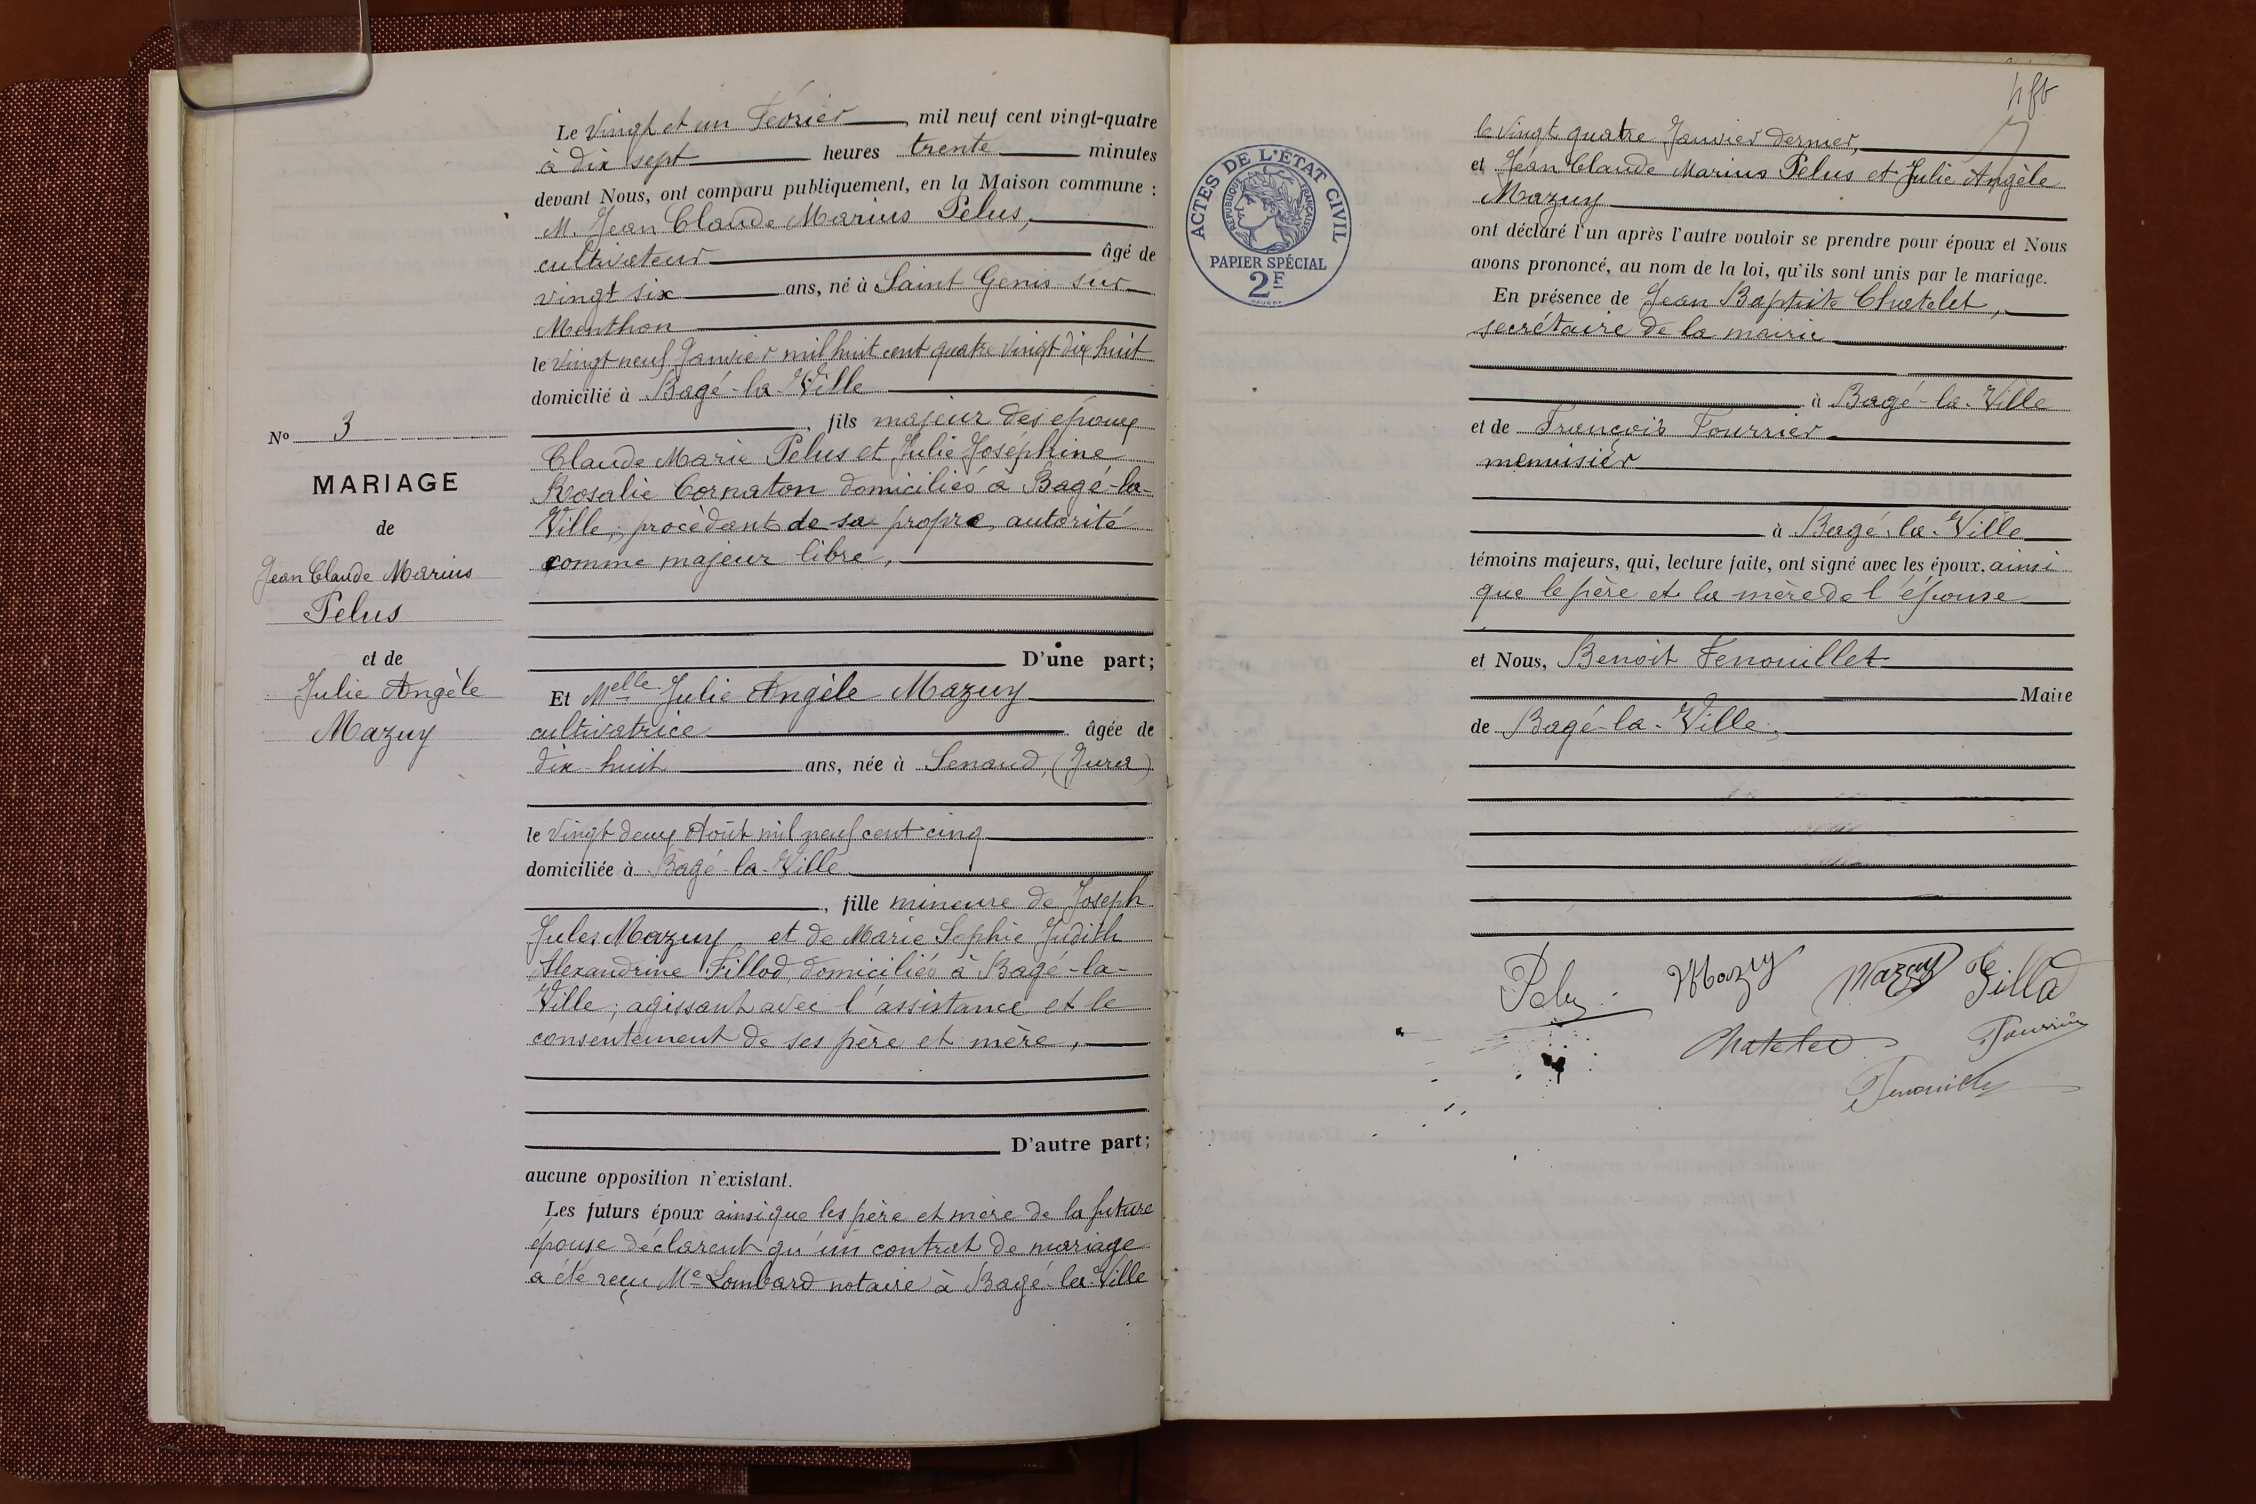 Le vingt et un Février, mil neuf cent vingt-quatre
à dix sept heures trente minutes
devant Nous, ont comparu publiquement, en la Maison commune :
M. Jean Claude Marius Pelus,
cultivateur âgé de
vingt six ans, né à Saint Genis sur
Menthon
le vingt neuf Janvier mil huit cent quatre vingt dix huit
domicilié à Bagé-la-Ville
, fils majeur des époux
Claude Marie Pelus et Julie Joséphine
Rosalie Cornaton domiciliés à Bagé-la-
Ville, procédant de sa propre autorité
comme majeur libre,
D'une part;
Et Melle Julie Angèle Mazuy
cultivatrice âgée de
dix huit ans, née à Senaud, (Jura)
le vingt deux Août mil neuf cent cinq
domiciliée à Bagé-la-Ville
, fille mineure de Joseph
Jules Mazuy et de Marie Sophie Judith
Alexandrine Fillod, domiciliés à Bagé-la-
Ville; agissant avec l'assistance et le
consentement de ses père et mère,
D'autre part;
aucune opposition n'existant.
Les futurs époux ainsi que les père et mère de la future
épouse déclarent qu'un contrat de mariage
a été reçu Me Lombard notaire à Bagé-la-Ville
No 3
MARIAGE
de
Jean Claude Marius
Pelus
et de
Julie Angèle
Mazuy
ACTES DE L'ÉTAT CIVIL
RÉPUBLIQUE FRANÇAISE
PAPIER SPÉCIAL
2F
le vingt quatre Janvier dernier,
et Jean Claude Marius Pelus et Julie Angèle
Mazuy
ont déclaré l'un après l'autre vouloir se prendre pour époux et Nous
avons prononcé, au nom de la loi, qu'ils sont unis par le mariage.
En présence de Jean Baptiste Chatelet,
secrétaire de la mairie
à Bagé-la-Ville
et de François Fourrier
menuisier
à Bagé-la-Ville
témoins majeurs, qui, lecture faite, ont signé avec les époux, ainsi
que le père et la mère de l'épouse
et Nous, Benoit Fenouillet
Maire
de Bagé-la-Ville,
Pelus Mazuy Mazuy Fe Fillod
Chatelet Fourrier
Fenouillet